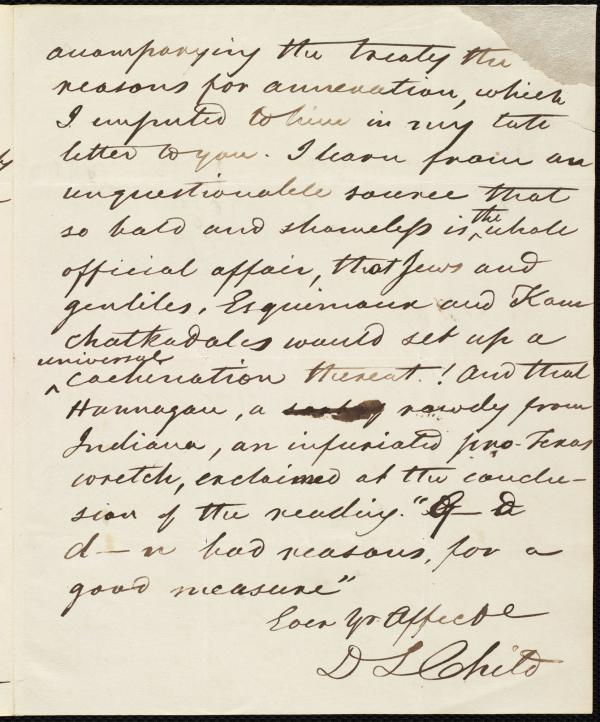 accompanying the treaty the
reasons for annexation, which
I imputed to him in my late
letter to you. I learn from an
unquestionable source that
so bald and shameless is the whole
official affair, that Jews and
gentiles, Esquimaux and Kam
chatkadales would set up a
universal cachination thereat! And that
Hannagan, a rowdy from
Indiana, an infuriated pro-Texas
wretch, exclaimed at the conclu-
sion of the reading. "G— d
d—n bad reasons, for a
good measure"
Ever yr affecte
D L Child